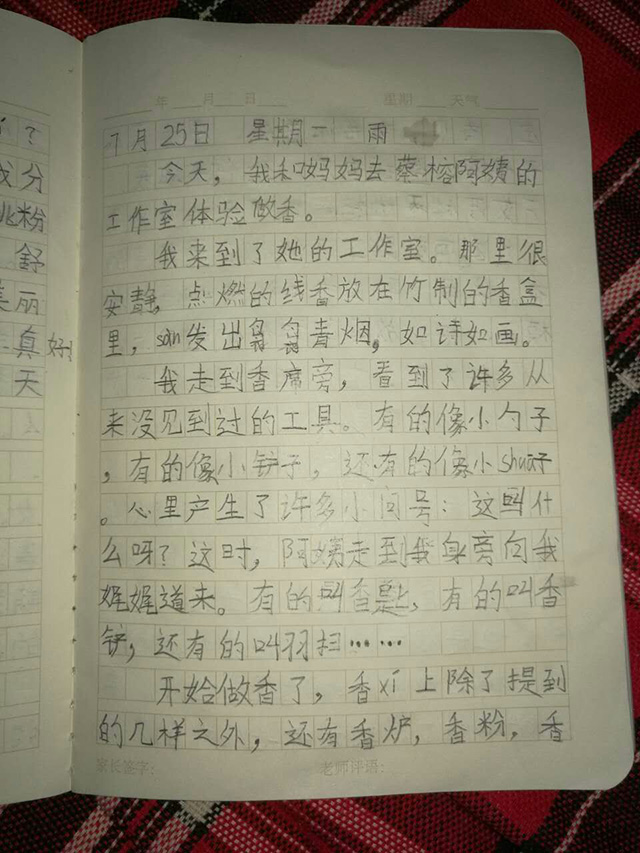 ？
成分
兆粉
舒
美丽
真好！
天
年 月 日 星期 天气
7月25日 星期一 雨
今天，我和妈妈去蔡榕阿姨的
工作室体验做香。
我来到了她的工作室。那里很
安静，点燃的线香放在竹制的香盒
里，sàn发出袅袅青烟，如诗如画。
我走到香席旁，看到了许多从
来没见到过的工具。有的像小勺子
，有的像小铲子，还有的像小shuā子
。心里产生了许多小问号：这叫什
么呀？这时，阿姨走到我身旁向我
娓娓道来。有的叫香匙，有的叫香
铲，还有的叫羽扫……
开始做香了，香xí上除了提到
的几样之外，还有香炉，香粉，香
家长签字： 老师评语：